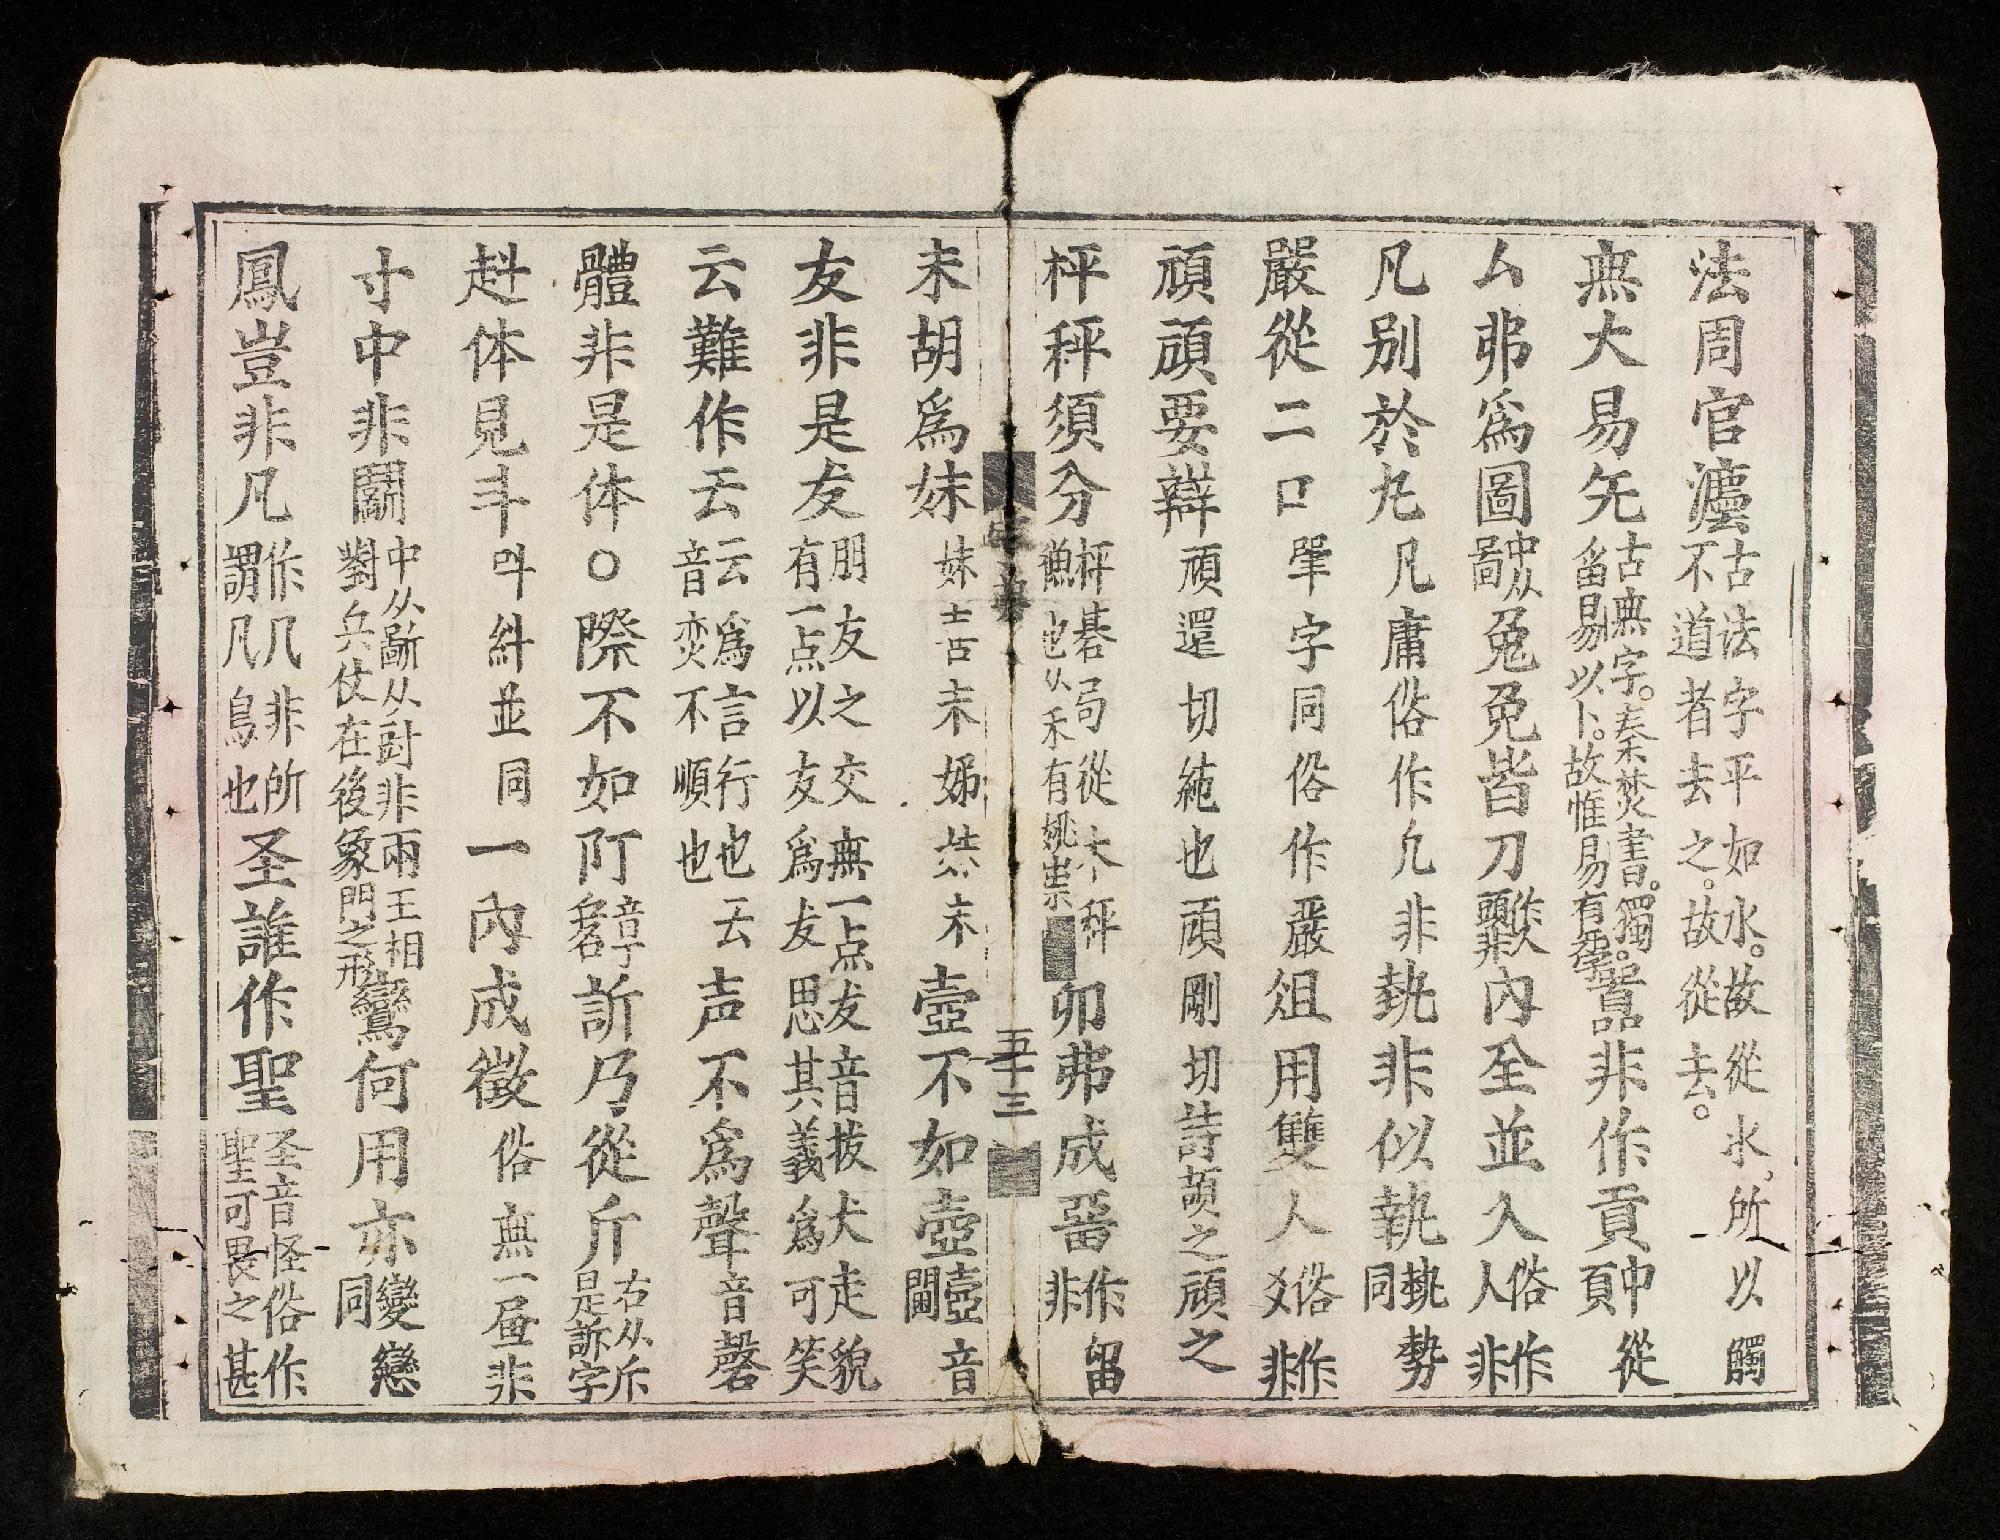 法周官灋古法字平如水。故從水。所以觸不道者去之。故從去。
無大易无古無字。秦焚書。獨畱易以卜。故惟易有。嚚非作貢中從頁
厶弗爲圖中从啚兔免皆刀內全並入俗作人非
凡別於九凡庸俗作凣非埶非似執埶勢同
嚴從二口單字同俗作嚴俎用雙人俗作爻非
頑頑要辯頑還切純也頑剛切詩頡之頑之
枰秤須分枰碁局從木秤也从禾有卯弗成畱作留非
五十三
未胡爲妹妹士舌未姊壼不如壺壺音
友非是犮朋友之交無一点犮音拔犬走貌有一点以友爲犮思其義爲可笑
云難作𠫓云爲言行也𠫓音突不順也云声不爲聲音磬
體非是体〇際不如阡訢乃從斤右从斤是訴字
㪷体見斗呌糾並同一內成徵俗無一
寸中非鬪中从斲从尌非兩王相對兵仗在後象門之形鸞何用亦變戀同
鳳豈非凡作几非所謂凡鳥也圣誰作聖圣音怪俗作聖可畏之甚